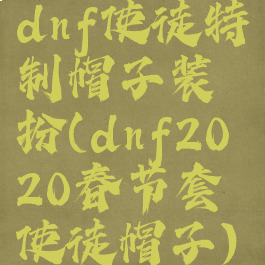 dnf使徒特
制帽子装
扮(dnf20
20春节套
使徒帽子)